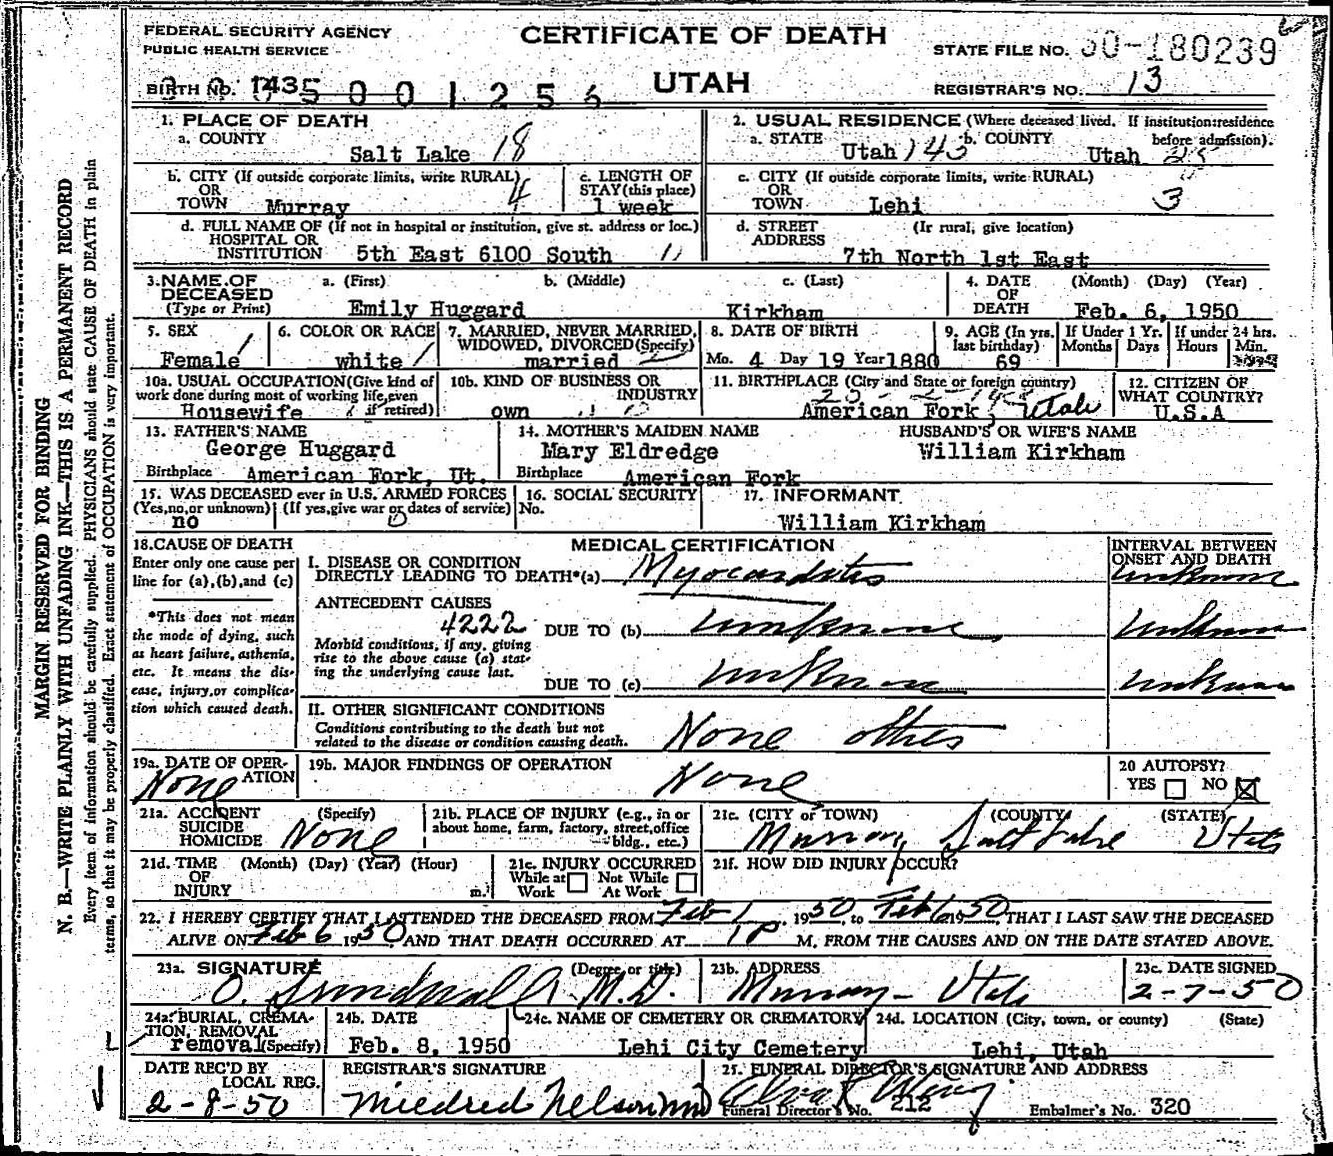 FEDERAL SECURITY AGENCY
PUBLIC HEALTH SERVICE
CERTIFICATE OF DEATH
UTAH
STATE FILE NO. 50-180239
REGISTRAR'S NO. 13
BIRTH NO. 143
5 0 0 1 2 5 6
1. PLACE OF DEATH
a. COUNTY
Salt Lake 18
2. USUAL RESIDENCE (Where deceased lived. If institution:residence before admission).
a. STATE Utah 143 b. COUNTY Utah 25
b. CITY (If outside corporate limits, write RURAL)
OR
TOWN Murray 4
c. LENGTH OF
STAY(this place)
1 week
c. CITY (If outside corporate limits, write RURAL)
OR
TOWN Lehi 3
d. FULL NAME OF (If not in hospital or institution, give st. address or loc.)
HOSPITAL OR
INSTITUTION 5th East 6100 South
d. STREET (If rural, give location)
ADDRESS
7th North 1st East
3. NAME OF DECEASED (Type or Print)
a. (First) b. (Middle) c. (Last)
Emily Huggard Kirkham
4. DATE OF DEATH (Month) (Day) (Year)
Feb. 6, 1950
5. SEX
Female
6. COLOR OR RACE
white
7. MARRIED, NEVER MARRIED,
WIDOWED, DIVORCED(Specify)
married
8. DATE OF BIRTH
Mo. 4 Day 19 Year 1880
9. AGE (In yrs. last birthday)
69
If Under 1 Yr. Months Days
If under 24 hrs. Hours Min.
10a. USUAL OCCUPATION(Give kind of
work done during most of working life,even
if retired)
Housewife
10b. KIND OF BUSINESS OR
INDUSTRY
own
11. BIRTHPLACE (City and State or foreign country)
American Fork, Utah
12. CITIZEN OF
WHAT COUNTRY?
U.S.A
13. FATHER'S NAME
George Huggard
Birthplace American Fork, Ut.
14. MOTHER'S MAIDEN NAME
Mary Eldredge
Birthplace American Fork
HUSBAND'S OR WIFE'S NAME
William Kirkham
15. WAS DECEASED ever in U.S. ARMED FORCES
(Yes,no,or unknown) (If yes,give war or dates of service)
no
16. SOCIAL SECURITY
No.
17. INFORMANT
William Kirkham
18. CAUSE OF DEATH
Enter only one cause per
line for (a),(b),and (c)
*This does not mean
the mode of dying, such
as heart failure, asthenia,
etc. It means the dis-
ease, injury,or complica-
tion which caused death.
MEDICAL CERTIFICATION
INTERVAL BETWEEN
ONSET AND DEATH
I. DISEASE OR CONDITION
DIRECTLY LEADING TO DEATH*(a) Myocarditis unknown
ANTECEDENT CAUSES
4222
DUE TO (b) unknown unknown
Morbid conditions, if any, giving
rise to the above cause (a) stat-
ing the underlying cause last.
DUE TO (c) unknown unknown
II. OTHER SIGNIFICANT CONDITIONS
Conditions contributing to the death but not
related to the disease or condition causing death.
None others
19a. DATE OF OPER-
ATION
None
19b. MAJOR FINDINGS OF OPERATION
None
20 AUTOPSY?
YES NO
21a. ACCIDENT (Specify)
SUICIDE
HOMICIDE None
21b. PLACE OF INJURY (e.g., in or
about home, farm, factory, street,office
bldg., etc.)
21c. (CITY or TOWN) (COUNTY) (STATE)
Murray Salt Lake Utah
21d. TIME (Month) (Day) (Year) (Hour)
OF
INJURY m.
21e. INJURY OCCURRED
While at Work Not While At Work
21f. HOW DID INJURY OCCUR?
22. I HEREBY CERTIFY THAT I ATTENDED THE DECEASED FROM Feb 1, 1950, to Feb 6 1950, THAT I LAST SAW THE DECEASED
ALIVE ON Feb 6 1950 AND THAT DEATH OCCURRED AT 1 P M, FROM THE CAUSES AND ON THE DATE STATED ABOVE.
23a. SIGNATURE (Degree or title)
O. Sundwall M.D.
23b. ADDRESS
Murray - Utah
23c. DATE SIGNED
2-7-50
24a. BURIAL, CREMA-
TION, REMOVAL
removal (Specify)
24b. DATE
Feb. 8, 1950
24c. NAME OF CEMETERY OR CREMATORY
Lehi City Cemetery
24d. LOCATION (City, town, or county) (State)
Lehi, Utah
DATE REC'D BY
LOCAL REG.
2-8-50
REGISTRAR'S SIGNATURE
Mildred Nelson
25. FUNERAL DIRECTOR'S SIGNATURE AND ADDRESS
Funeral Director's No. 212 Embalmer's No. 320
MARGIN RESERVED FOR BINDING
N. B.—WRITE PLAINLY WITH UNFADING INK—THIS IS A PERMANENT RECORD
Every item of information should be carefully supplied. PHYSICIANS should state CAUSE OF DEATH in plain
terms, so that it may be properly classified. Exact statement of OCCUPATION is very important.